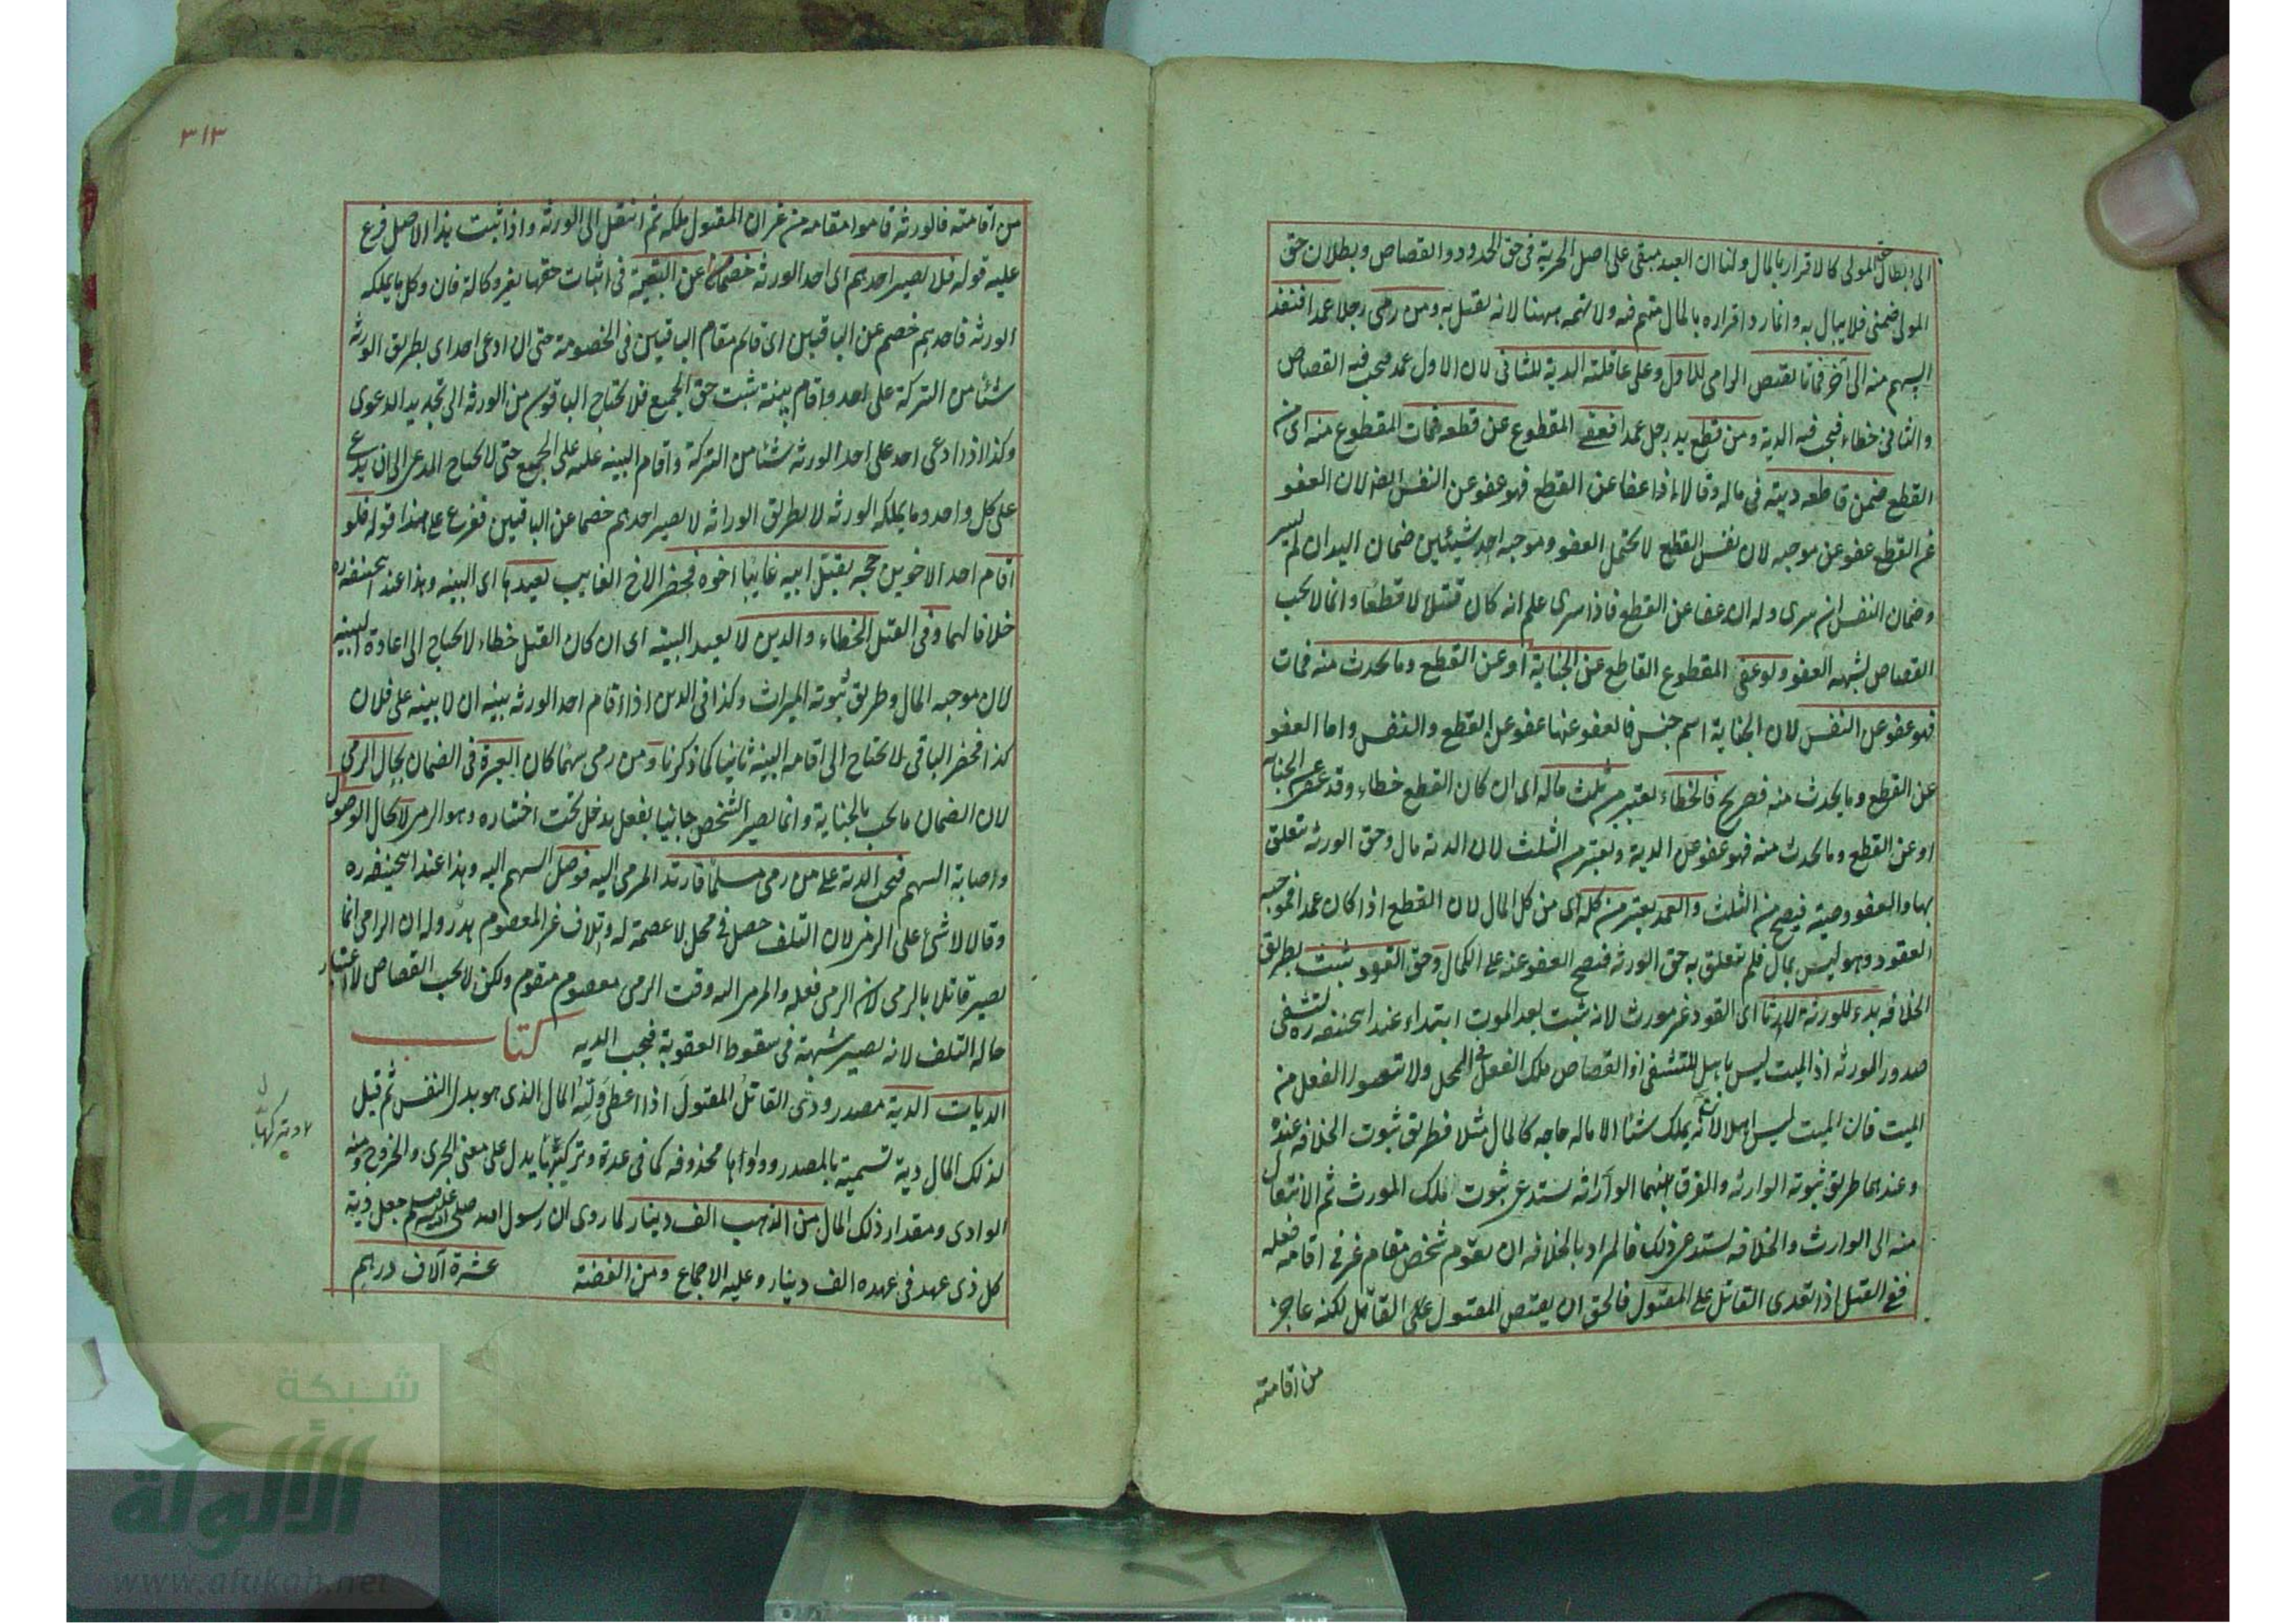 الى ابطال حق المولى كالاقرار بالمال ولنا ان العبد مبقى على اصل الحرية فى حق الحدود والقصاص وبطلان حق
المولى ضمنى فلا يبال به وانما رد اقراره بالمال متهم فيه ولا تهمة ههنا لانه يقتل به ومن رمى رجلا عمدا فنفذ
السهم منه الى آخر فماتا يقتص الرامى للاول وعلى عاقلته الدية للثانى لان الاول عمد فيجب فيه القصاص
والثانى خطاء فيجب فيه الدية ومن قطع يد رجل عمدا فعفى المقطوع عن قطعه فمات المقطوع منه اى من
القطع ضمن قاطعه ديته فى ماله وقالا اذا عفا عن القطع فهو عفو عن النفس ايضا لان العفو
عن القطع عفو عن موجبه لان نفس القطع لا يحتمل العفو وموجبه احد شيئين ضمان اليد ان لم يسر
وضمان النفس ان سرى وله ان عفا عن القطع فاذا سرى علم انه كان قتلا لا قطعا وانما لا يجب
القصاص لشبهه العفو ولو عفى المقطوع القاطع عن الجناية او عن القطع وما يحدث منه فمات
فهو عفو عن النفس لان الجناية اسم جنس فالعفو عنها عفو عن القطع والنفس واما العفو
عن القطع وما يحدث منه فصريح فالخطاء يعتبر من ثلث ماله اى ان كان القطع خطاء وقد عفى عن الجناية
او عن القطع وما يحدث منه فهو عفو عن الدية ويعتبر من الثلث لان الدية مال وحق الورثه تتعلق
بها والعفو وصية فيصح من الثلث والعمد يعتبر من كله اى من كل المال لان القطع اذا كان عمدا فموجبه
القود وهو ليس بمال فلم يتعلق به حق الورثه فيصح العفو عنه على الكمال وحق القود يثبت بطريق
الخلافه بدء للورثة لا ارثا اى القود غير مورث لانه يثبت بعد الموت ابتداء عند ابى حنيفه ره لتشفى
صدور الورثه اذ الميت ليس باهل للتشفى اذ القصاص ملك الفعل فى المحل ولا يتصور الفعل من
الميت فان الميت ليس اهلا لان يملك شئا الا ماله حاجه كالمال مثلا فطريق ثبوت الخلافه عنده
وعندهما طريق ثبوته الوارثه والفرق بينهما الوراثه يستدعى ثبوت ملك المورث ثم الانتقال
منه الى الوارث والخلافه لا يستدعى ذلك فالمراد بالخلافه ان يقوم شخص مقام غيره فى اقامة فعله
ففى القتل اذ تعدى القاتل على المقتول فالحق ان يقتص المقتول على القاتل لكنه عاجز
من اقامته
٣١٣
من اقامته فالورثة قاموا مقامه من غير ان المقتول ملكه ثم انتقل الى الورثة واذا ثبت هذا الاصل فرع
عليه قوله فلا يصير احدهم اى احد الورثه خصما عن البقية فى اثبات حقها بغير وكالة فان وكل ما يملكه
الورثه فاحدهم خصم عن الباقين اى قائم مقام الباقين فى الخصومة حتى ان ادعى احد اى بطريق الورثه
شئا من التركة على احد واقام بينة ثبت حق الجميع فلا يحتاج الباقون من الورثه الى تجديد الدعوى
وكذا اذا ادعى احد على احد الورثه شئا من التركة واقام البينه عليه على الجميع حتى لا يحتاج المدعى الى ان يدعى
على كل واحد وما يملكه الورثه لا بطريق الوراثه لا يصير احدهم خصما عن الباقين ففرع على هذا قوله فلو
اقام احد الاخوين حجه بقتل ابيه غايبا اخوه فحضر الاخ الغايب يعيدها اى البينه وهذا عند ابى حنيفه ره
خلافا لهما وفى القتل الخطاء والدين لا يعيد البينه اى ان كان القتل خطاء لا يحتاج الى اعادة البينه
لان موجبه المال وطريق ثبوته الميراث وكذا فى الدين اذا اقام احد الورثه بينه ان لابيه على فلان
كذا فحضر الباقى لا يحتاج الى اقامه البينه ثانيا كما ذكرنا ومن رمى سهما كان العبرة فى الضمان بحال الرمى
لان الضمان ما يجب بالجناية وانما يصير الشخص جانيا بفعل يدخل تحت اختياره وهو الرمى لا بحال الوصول
واصابة السهم فيجب الدية على من رمى مسلما فارتد المرمى اليه فوصل السهم اليه وهذا عند ابى حنيفه ره
وقالا لا شئ على الرامى لان التلف حصل فى محل لا عصمة له واتلاف غير المعصوم هدر وله ان الرامى انما
يصير قاتلا بالرمى لان الرمى فعله والمرمى اليه وقت الرمى معصوم متقوم ولكن لا يجب القصاص لاعتبار
حاله التلف لانه يصير شبهة فى سقوط العقوبة فيجب الديه كتاب
الديات الدية مصدر ودى القاتل المقتول اذا اعطى وليه المال الذى هو بدل النفس ثم قيل
لذلك المال دية تسمية بالمصدر وواوها محذوفه كما فى عدة وتركيبها يدل على معنى الجرى والخروج ومنه
الوادى ومقدار ذلك المال من الذهب الف دينار لما روى ان رسول الله صلى الله عليه وسلم جعل دية
كل ذى عهد فى عهده الف دينار وعليه الاجماع ومن الفضة عشرة آلاف درهم
شبكة
الألوكة
www.alukah.net